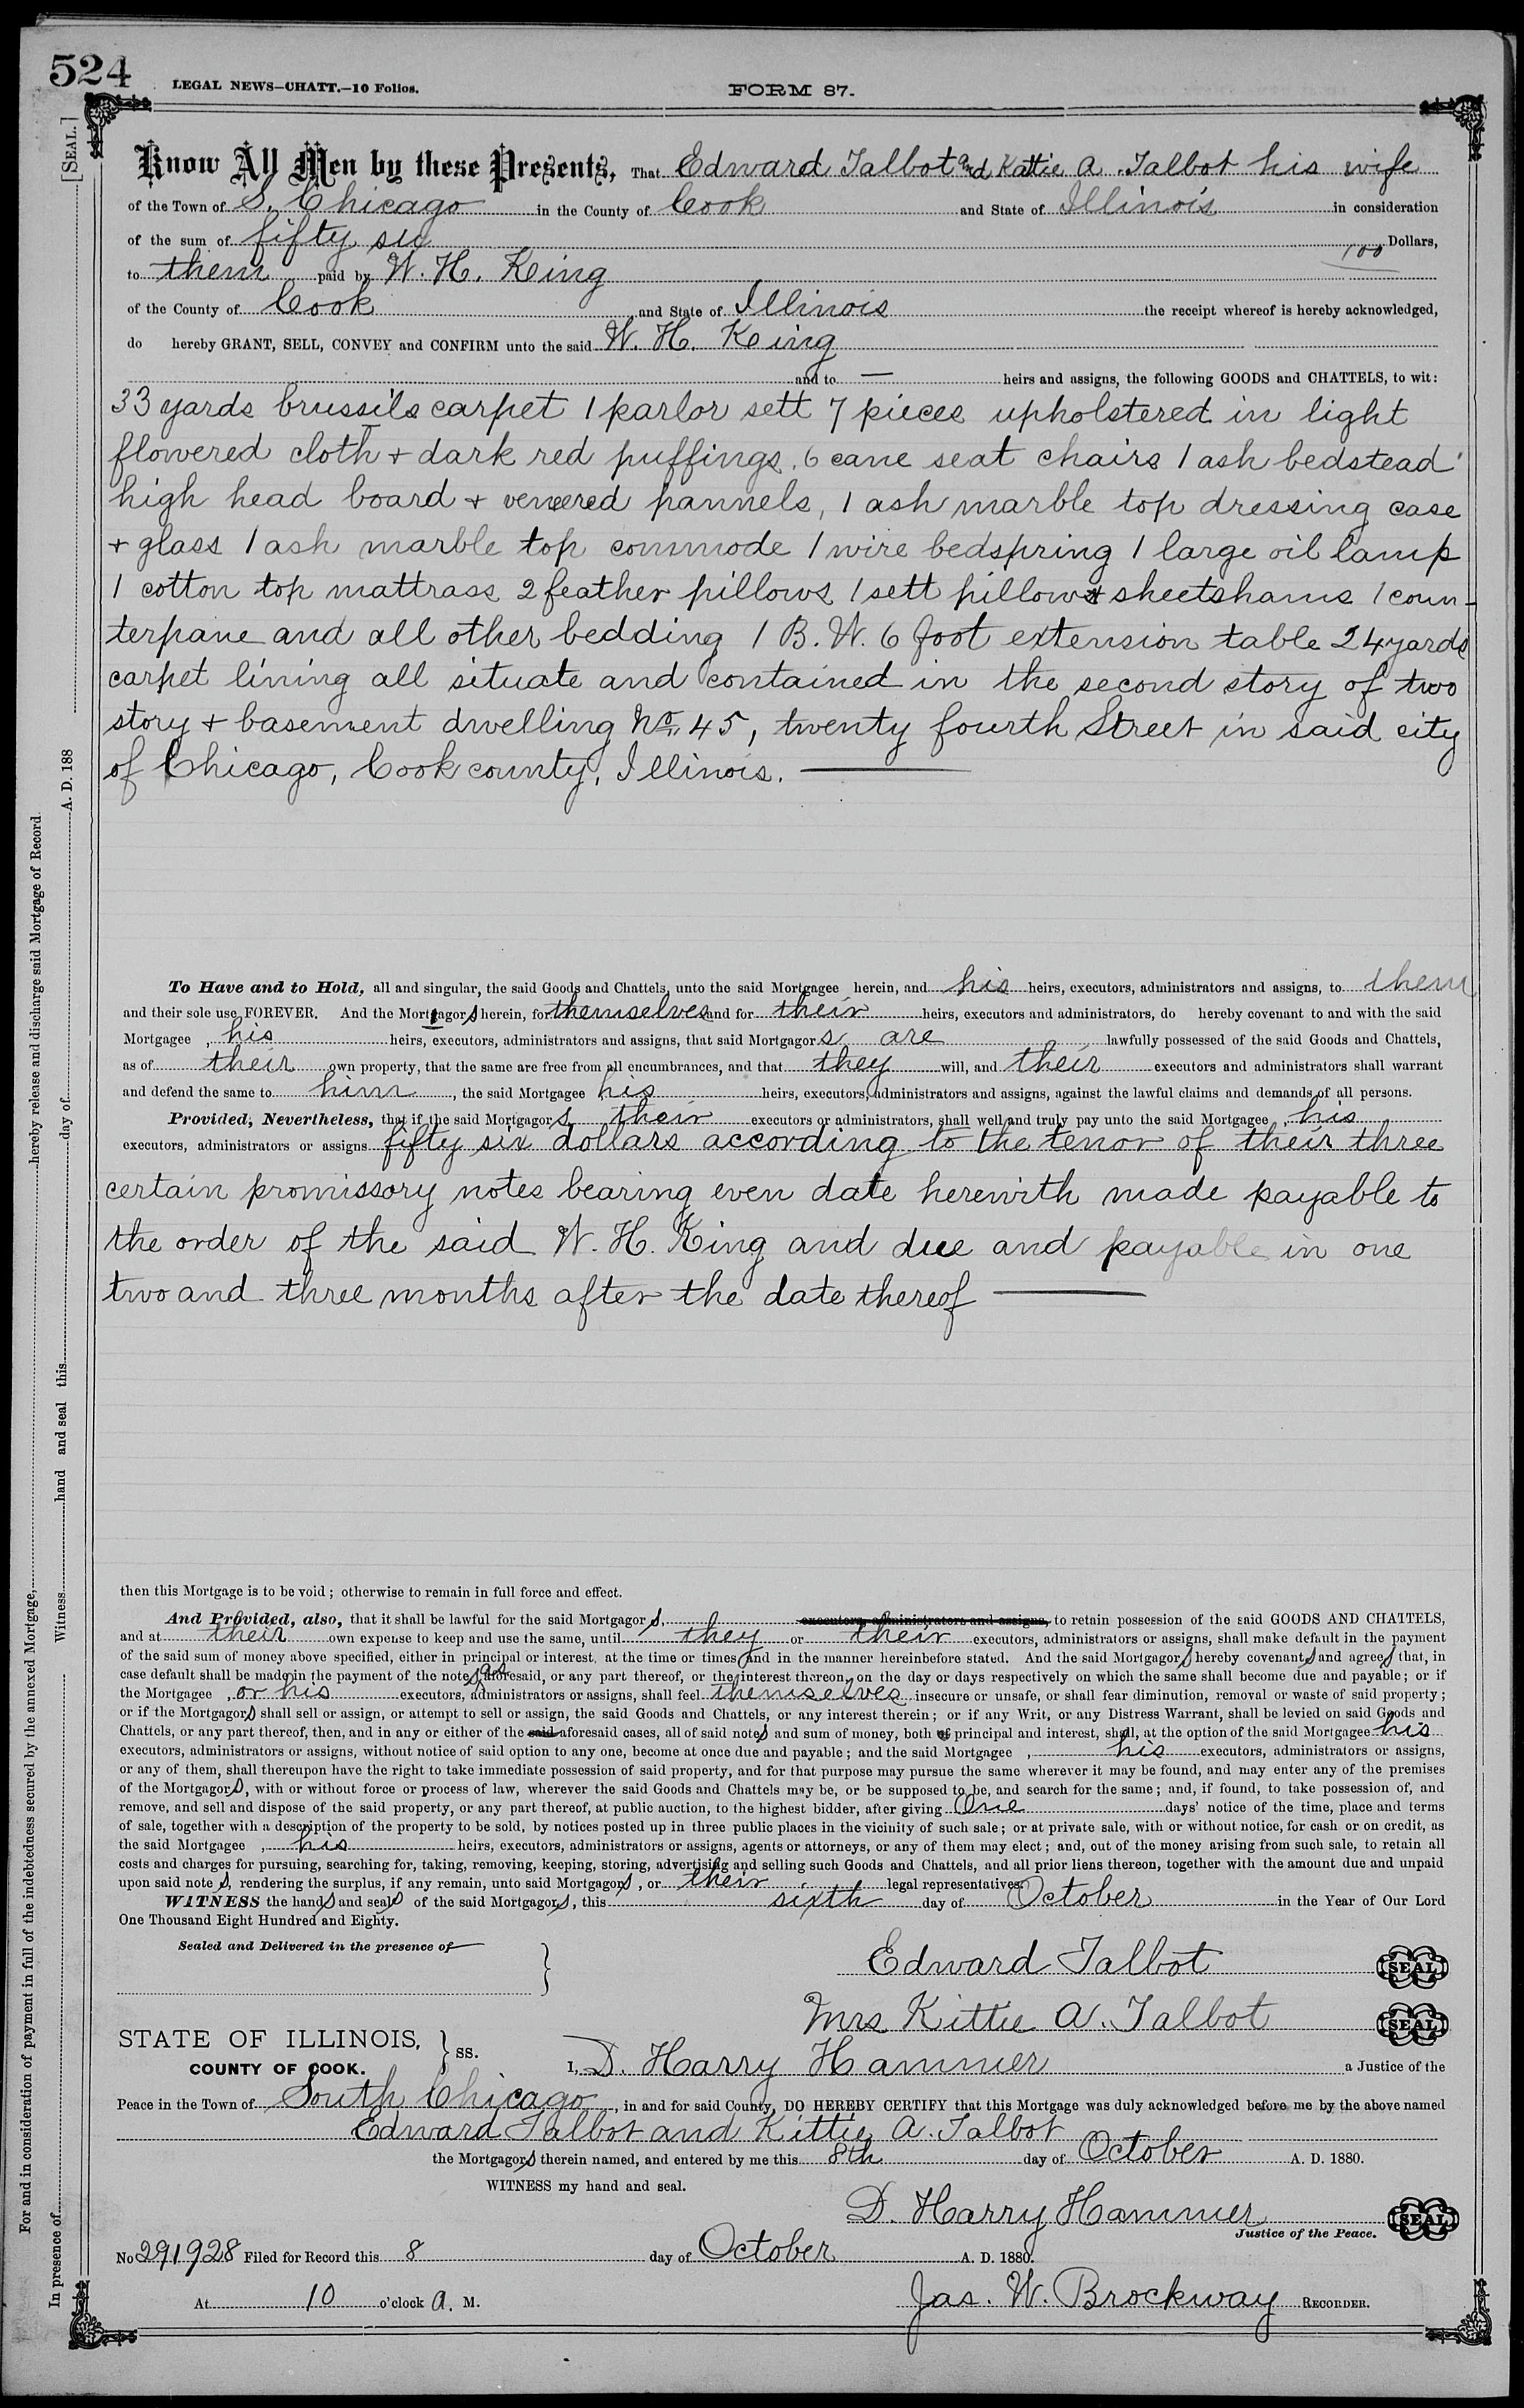 524
LEGAL NEWS—CHATT.—10 Folios.
FORM 87.
Know All Men by these Presents, That Edward Talbot and Kattie A. Talbot his wife
of the Town of S. Chicago in the County of Cook and State of Illinois in consideration
of the sum of fifty six 100 Dollars,
to them paid by W. H. King
of the County of Cook and State of Illinois the receipt whereof is hereby acknowledged,
do hereby GRANT, SELL, CONVEY and CONFIRM unto the said W. H. King
and to — heirs and assigns, the following GOODS and CHATTELS, to wit:
33 yards brussils carpet 1 parlor sett 7 pieces upholstered in light
flowered cloth + dark red puffings, 6 cane seat chairs 1 ash bedstead
high head board + veneered pannels, 1 ash marble top dressing case
+ glass 1 ash marble top commode 1 wire bedspring 1 large oil lamp
1 cotton top mattrass 2 feather pillows 1 sett pillow + sheetshams 1 coun-
terpane and all other bedding 1 B. W. 6 foot extension table 24 yards
carpet lining all situate and contained in the second story of two
story + basement dwelling No. 45, twenty fourth Street in said city
of Chicago, Cook county, Illinois.
To Have and to Hold, all and singular, the said Goods and Chattels, unto the said Mortgagee herein, and his heirs, executors, administrators and assigns, to them
and their sole use FOREVER. And the Mortgagors herein, for themselves and for their heirs, executors and administrators, do hereby covenant to and with the said
Mortgagee , his heirs, executors, administrators and assigns, that said Mortgagors are lawfully possessed of the said Goods and Chattels,
as of their own property, that the same are free from all encumbrances, and that they will, and their executors and administrators shall warrant
and defend the same to him , the said Mortgagee his heirs, executors, administrators and assigns, against the lawful claims and demands of all persons.
Provided, Nevertheless, that if the said Mortgagors their executors or administrators, shall well and truly pay unto the said Mortgagee , his
executors, administrators or assigns fifty six dollars according to the tenor of their three
certain promissory notes bearing even date herewith made payable to
the order of the said W. H. King and due and payable in one
two and three months after the date thereof
then this Mortgage is to be void ; otherwise to remain in full force and effect.
And Provided, also, that it shall be lawful for the said Mortgagor s, executors, administrators and assigns, to retain possession of the said GOODS AND CHATTELS,
and at their own expense to keep and use the same, until they or their executors, administrators or assigns, shall make default in the payment
of the said sum of money above specified, either in principal or interest, at the time or times and in the manner hereinbefore stated. And the said Mortgagors hereby covenant and agree that, in
case default shall be made in the payment of the notes aforesaid, or any part thereof, or the interest thereon, on the day or days respectively on which the same shall become due and payable ; or if
the Mortgagee , or his executors, administrators or assigns, shall feel themselves insecure or unsafe, or shall fear diminution, removal or waste of said property ;
or if the Mortgagors shall sell or assign, or attempt to sell or assign, the said Goods and Chattels, or any interest therein ; or if any Writ, or any Distress Warrant, shall be levied on said Goods and
Chattels, or any part thereof, then, and in any or either of the said aforesaid cases, all of said notes and sum of money, both of principal and interest, shall, at the option of the said Mortgagee his
executors, administrators or assigns, without notice of said option to any one, become at once due and payable ; and the said Mortgagee , his executors, administrators or assigns,
or any of them, shall thereupon have the right to take immediate possession of said property, and for that purpose may pursue the same wherever it may be found, and may enter any of the premises
of the Mortgagors, with or without force or process of law, wherever the said Goods and Chattels may be, or be supposed to be, and search for the same ; and, if found, to take possession of, and
remove, and sell and dispose of the said property, or any part thereof, at public auction, to the highest bidder, after giving One days' notice of the time, place and terms
of sale, together with a description of the property to be sold, by notices posted up in three public places in the vicinity of such sale ; or at private sale, with or without notice, for cash or on credit, as
the said Mortgagee , his heirs, executors, administrators or assigns, agents or attorneys, or any of them may elect ; and, out of the money arising from such sale, to retain all
costs and charges for pursuing, searching for, taking, removing, keeping, storing, advertising and selling such Goods and Chattels, and all prior liens thereon, together with the amount due and unpaid
upon said note s, rendering the surplus, if any remain, unto said Mortgagors, or their legal representatives.
WITNESS the hands and seals of the said Mortgagors, this sixth day of October in the Year of Our Lord
One Thousand Eight Hundred and Eighty.
Sealed and Delivered in the presence of
Edward Talbot SEAL
Mrs Kittie A. Talbot SEAL
STATE OF ILLINOIS, } ss.
COUNTY OF COOK.
I, D. Harry Hammer a Justice of the
Peace in the Town of South Chicago , in and for said County, DO HEREBY CERTIFY that this Mortgage was duly acknowledged before me by the above named
Edward Talbot and Kittie A. Talbot
the Mortgagors therein named, and entered by me this 8th day of October A. D. 1880.
WITNESS my hand and seal.
D. Harry Hammer SEAL
Justice of the Peace.
No 291928 Filed for Record this 8 day of October A. D. 1880.
At 10 o'clock A. M. Jas. W. Brockway RECORDER.
For and in consideration of payment in full of the indebtedness secured by the annexed Mortgage, hereby release and discharge said Mortgage of Record.
Witness hand and seal this day of A. D. 188
In presence of [SEAL.]